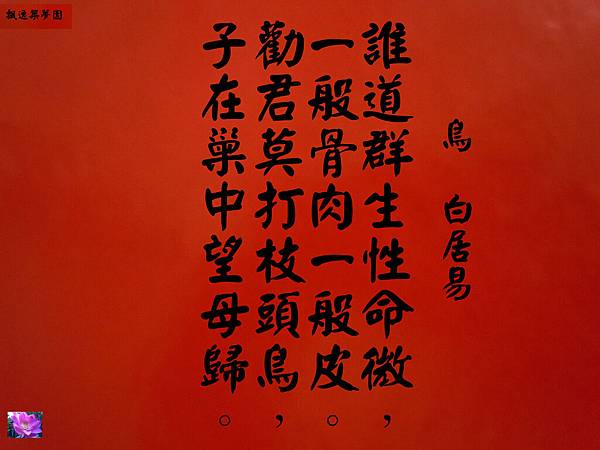 飄逸築夢園
鳥 白居易
誰道群生性命微，
一般骨肉一般皮。
勸君莫打枝頭鳥，
子在巢中望母歸。